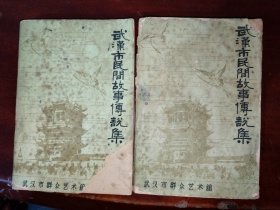 武漢市民間故事傳說集
武汉市群众艺术馆
武漢市民間故事傳說集
武汉市群众艺术馆